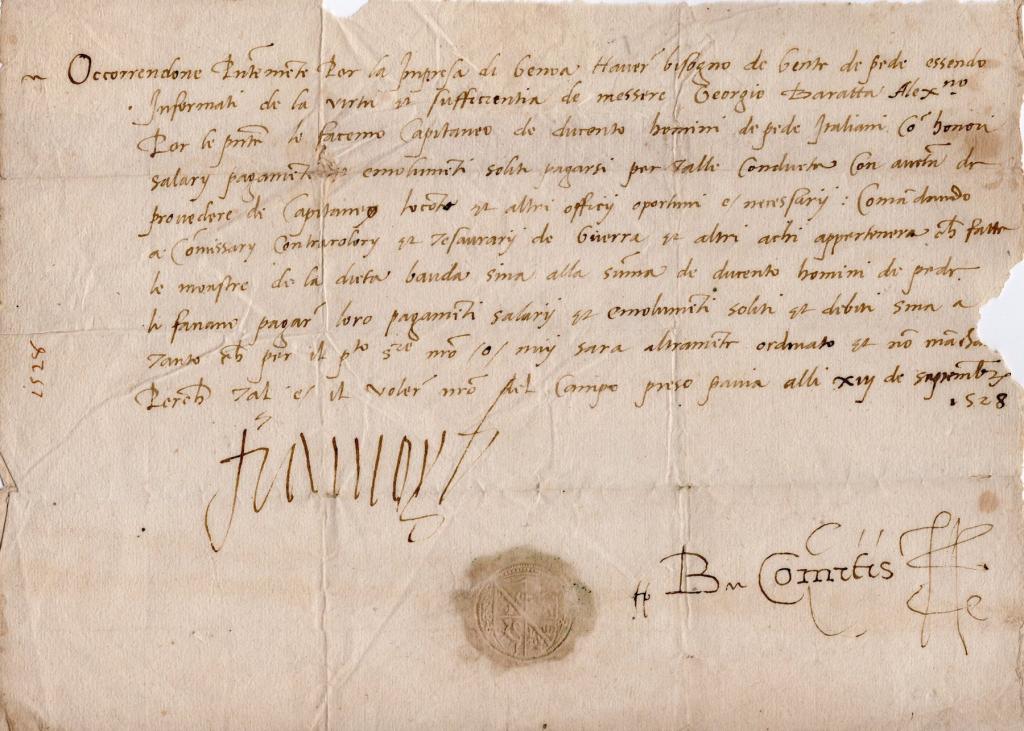 Occorrendone Pñtemẽte Per la Impresa di Genoa Haver bisogno de Gente de pede essendo
Informati de la virtù et sufficientia de messere Georgio Baratta Alex.no
Per le pñte lo facemo Capitaneo de ducento homini de pede Italiani Cõ honori
salarij pagamenti et emolumenti soliti pagarsi per talle Conducta Con auctã de
provedere de Capitaneo locote et altri officij oportuni e/ necessarij: Comãdando
a Comissary Contrarolory et Tesaurarij de Guerra et altri achi appertenera ch fatte
le monstre de la dicta banda sina alla sũma de ducento homini de pede
li faciano pagar loro pagamenti salarij et emolumenti soliti et debiti sina a
Tanto ch per il pto Sre nro /o/ nuij sara altramente ordinato et nõ mãchare
Perch Tal e/ il voler nro Del Campo preso pavia alli xvij de septembre
1528
1528
Bn Comitis